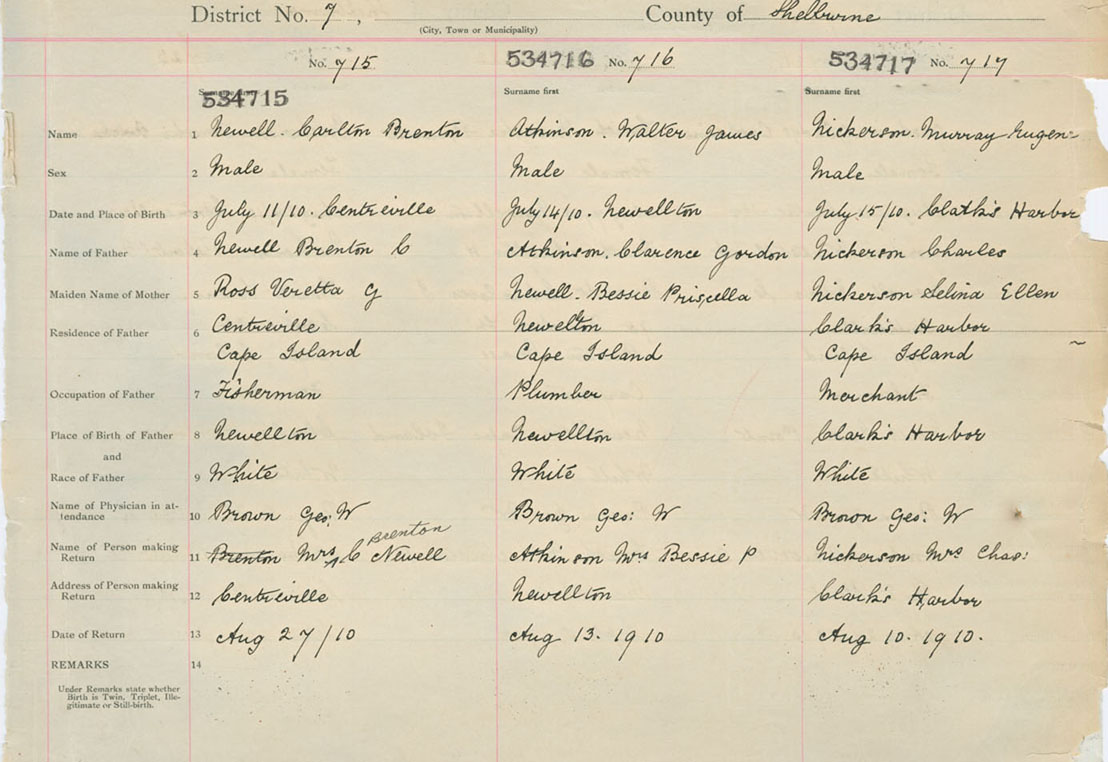 District No. 7, County of Shelburne
(City, Town or Municipality)
No. 715 534716 No. 716 534717 No. 717
534715 Surname first Surname first
Name 1 Newell. Carlton Brenton Atkinson. Walter James Nickerson. Murray Eugen-
Sex 2 Male Male Male
Date and Place of Birth 3 July 11/10. Centreville July 14/10. Newellton July 15/10. Clark's Harbor
Name of Father 4 Newell Brenton C Atkinson. Clarence Gordon Nickerson Charles
Maiden Name of Mother 5 Ross Veretta G Newell. Bessie Priscella Nickerson Selina Ellen
Residence of Father 6 Centreville Newellton Clark's Harbor
Cape Island Cape Island Cape Island
Occupation of Father 7 Fisherman Plumber Merchant
Place of Birth of Father 8 Newellton Newellton Clark's Harbor
and
Race of Father 9 White White White
Name of Physician in at-
tendance 10 Brown Geo: W Brown Geo: W Brown Geo: W
Brenton
Name of Person making
Return 11 Brenton Mrs C Newell Atkinson Mrs Bessie P Nickerson Mrs Chas:
Address of Person making
Return 12 Centreville Newellton Clark's Harbor
Date of Return 13 Aug 27/10 Aug 13. 1910 Aug 10. 1910.
REMARKS 14
Under Remarks state whether
Birth is Twin, Triplet, Ille-
gitimate or Still-birth.